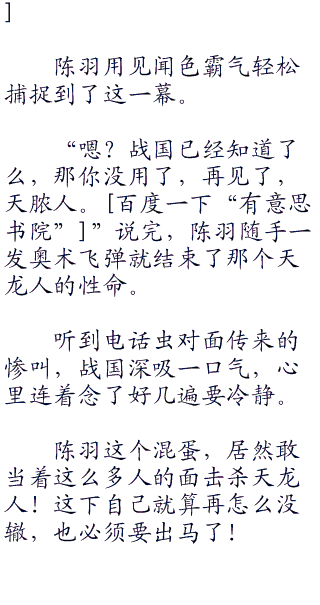 ]
陈羽用见闻色霸气轻松
捕捉到了这一幕。
“嗯？战国已经知道了
么，那你没用了，再见了，
天脓人。[百度一下“有意思
书院”]”说完，陈羽随手一
发奥术飞弹就结束了那个天
龙人的性命。
听到电话虫对面传来的
惨叫，战国深吸一口气，心
里连着念了好几遍要冷静。
陈羽这个混蛋，居然敢
当着这么多人的面击杀天龙
人！这下自己就算再怎么没
辙，也必须要出马了！